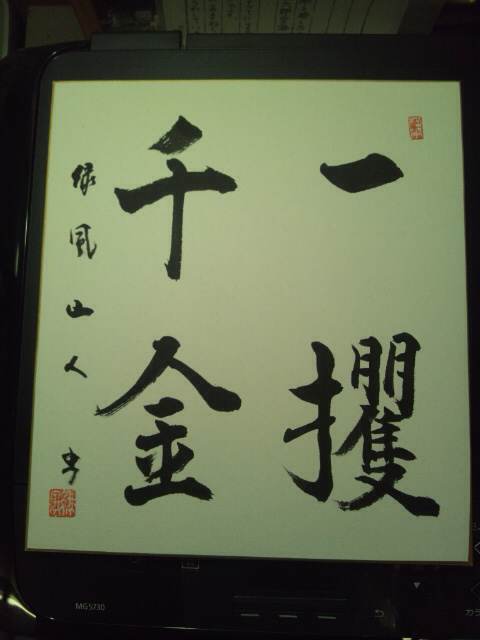 一攫
千金
緑風山人書
MG5730